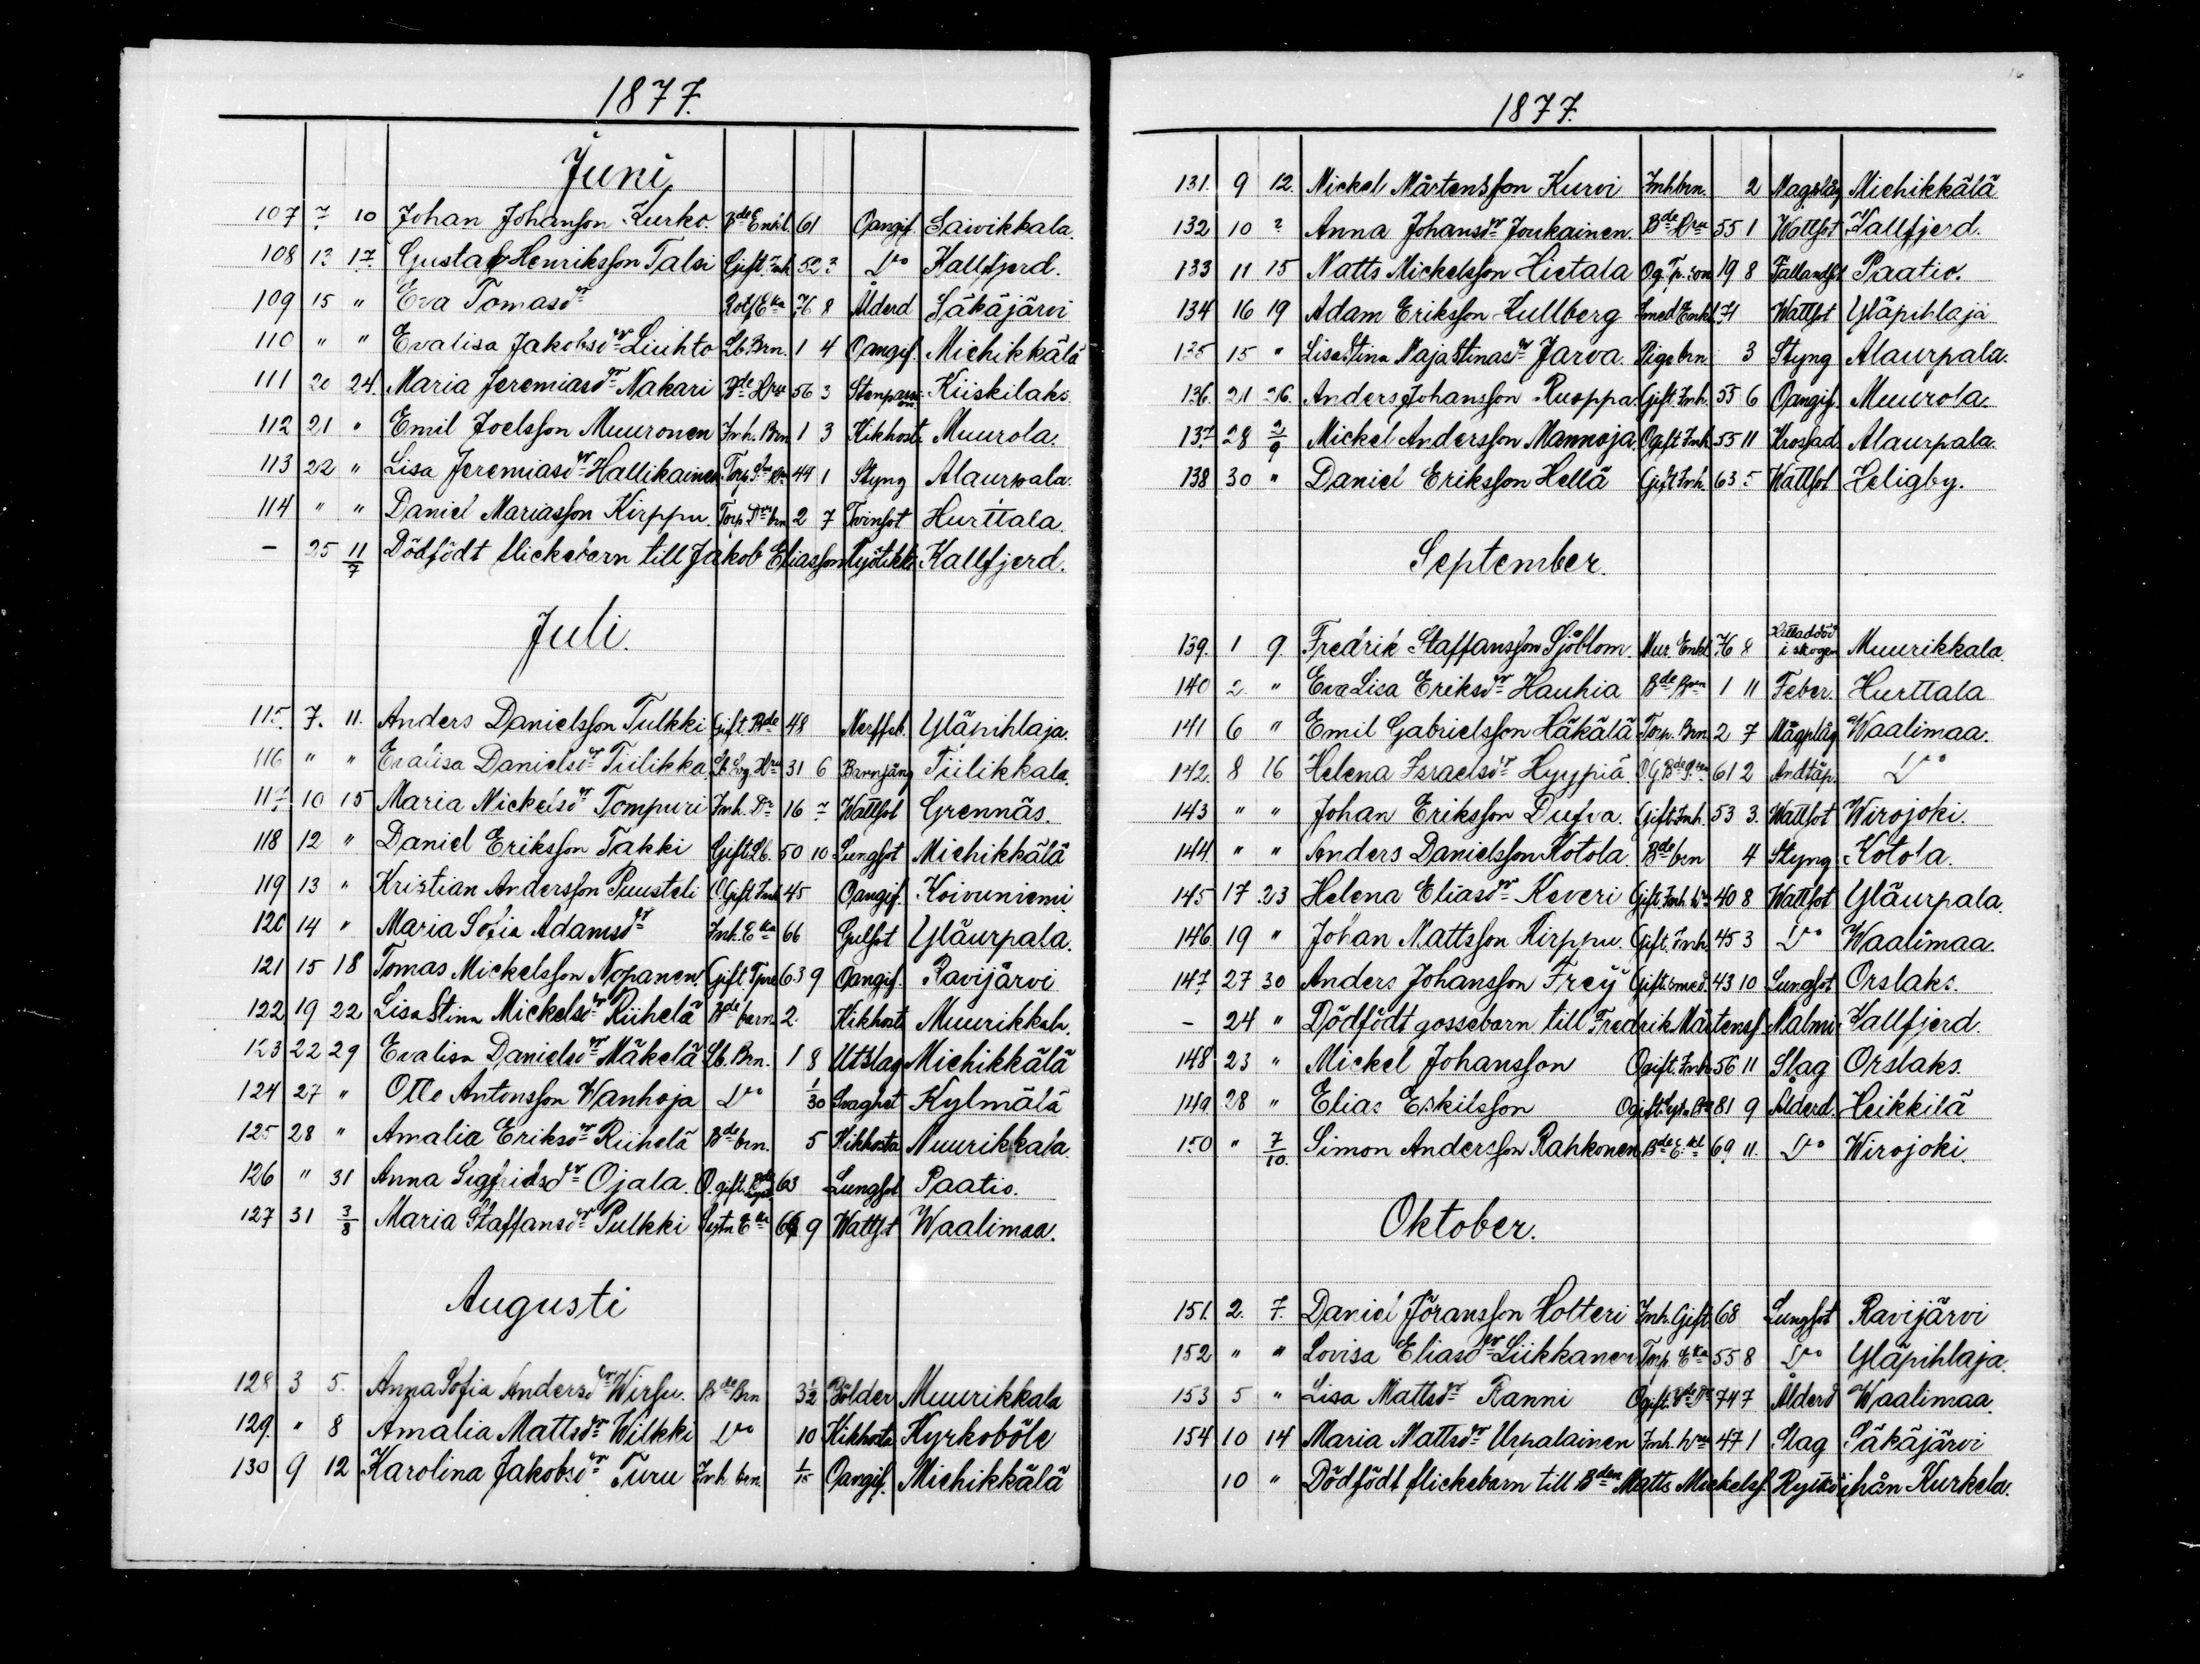 1877.
Juni
107 7 10 Johan Johansson Kurko. Bde Enkl. 61 Oangif. Saivikkala.
108 13 17. Gustaf Henriksson Talsi Gift Inh 52 3 Do Kallfjerd.
109 15 " Eva Tomasdr Rotf Eka 76 8 Ålderd Säkäjärvi
110 " " Evalisa Jakobsdr Liuhto Lb. Brn. 1 4 Oangif. Miehikkälä
111 20 24. Maria Jeremiasdr Nakari Bde Hru 56 3 Stenpassion Kiiskilaks.
112 21 " Emil Joelsson Muuronen Inh. Brn 1 3 Kikhosta Muurola.
113 22 " Lisa Jeremiasdr Hallikainen. Torp. 44 1 Styng Alaurpala.
114 " " Daniel Mariasson Kirppu. Torp. Drs brn 2 7 Tvinsot Hurttala.
— 25 11/7 Dödfödt flickebarn till Jakob Eliasson Kallfjerd.
Juli.
115. 7. 11. Anders Danielsson Tulkki Gift. Bde 48 Nerffeb. Yläpihlaja.
116 " " Evalisa Danielsdr Tiilikka Hru 31 6 Barnsäng Tiilikkala
117 10 15 Maria Mickelsdr Tompuri Inh. Dr 16 Wattsot Grennäs.
118 12 " Daniel Eriksson Takki Gift Lb. 50 10 Lungsot Miehikkälä
119 13 " Kristian Andersson Puusteli Ogift Inh 45 Oangif. Koivuniemi
120 14 " Maria Sofia Adamsdr Inh. Eka 66 Gulsot Yläurpala.
121 15 18 Tomas Mickelsson Nopanen. Gift. Tpre 63 9 Oangif. Ravijärvi
122 19 22 Lisa Stina Mickelsdr Riihelä Bde barn 2. Kikhosta Muurikkala.
123 22 29 Evalisa Danielsdr Mäkelä Lb. Brn. 1 8 Utslag Miehikkälä
124 27 " Otto Antonsson Wanhoja Do 1/30 Svaghet Kylmälä
125 28 " Amalia Eriksdr Riihelä Bde brn. 5 Kikhosta Muurikkala
126 " 31 Anna Sigfridsdr Ojala. O. gift. 63 Lungsot Paatio.
127 31 3/8 Maria Staffansdr Pulkki Eka 66 9 Wattsot Waalimaa.
Augusti
128 3 5. Anna Sofia Andersdr Wirsu. Bde Brn 3½ Bölder Muurikkala
129. " 8 Amalia Mattsdr Wilkki Do 10 Kikhosta Kyrkoböle
130 9 12 Karolina Jakobsdr Turu Inh brn. 1/15 Oangif. Miehikkälä
1877.
131. 9 12. Mickel Mårtensson Kurvi Inh brn. 2 Magplåg Miehikkälä
132 10 " Anna Johansdr Joukainen. Bde Hru 55 1 Wattsot Kallfjerd.
133 11 15 Matts Mickelsson Hietala Og. Tp. son 19 8 Fallandsot Paatio.
134 16 19 Adam Eriksson Kullberg Smed Enkl 71 Wattsot Yläpihlaja
135 15 " Lisa Stina Maja Stinasdr Jarva. Piga brn 3 Styng Alaurpala.
136. 21 26. Anders Johansson Ruoppa. Gift Inh. 55 6 Oangif. Muurola.
137 28 2/9 Mickel Andersson Mannoja. Ogift Inh. 55 11 Krosad. Alaurpala.
138 30 " Daniel Eriksson Hellä Gift Inh. 63 5 Wattsot Heligby.
September.
139. 1 9. Fredrik Staffansson Sjöblom. Mur. Enkl 76 8 Hittad död i skogen Muurikkala
140 2. " Eva Lisa Eriksdr Hauhia Bde Brn 1 11 Feber. Hurttala
141 6 " Emil Gabrielsson Häkälä Torp. Brn. 2 7 Magplåg Waalimaa.
142. 8 16 Helena Israelsdr Hyypiä 61 2 Andtäp. Do
143 " " Johan Eriksson Dufva. Gift Inh. 53 3. Wattsot Wirojoki.
144 " " Anders Danielsson Kotola. Bde brn 4 Styng Kotola.
145 17 23 Helena Eliasdr Keveri Gift. Inh. 40 8 Wattsot Yläurpala.
146 19 " Johan Mattsson Kirppu. Gift. Inh. 45 3 Do Waalimaa.
147. 27 30 Anders Johansson Frey Gift smed. 43 10 Lungsot Orslaks.
— 24 " Dödfödt gossebarn till Fredrik Mårtenss. Malmi Kallfjerd.
148 23 " Mickel Johansson Ogift. Inh 56 11 Slag Orslaks.
149 28 " Elias Eskilsson Ogift 81 9 Ålderd. Heikkilä
150 " 7/10. Simon Andersson Rahkonen Bde Ekl 69 11. Do Wirojoki.
Oktober.
151. 2. 7. Daniel Jöransson Hotteri Inh. Gift. 68 Lungsot Ravijärvi
152 " " Lovisa Eliasdr Liikkanen Torp. Eka 55 8 Do Yläpihlaja.
153 5 " Lisa Mattsdr Ranni Ogift. Bde Dr 74 7 Ålderd Waalimaa.
154 10 14 Maria Mattsdr Urpalainen Inh. Hru 47 1 Slag Säkäjärvi
10 " Dödfödt flickebarn till Bden Matts Mickelss. ifrån Kurkela.